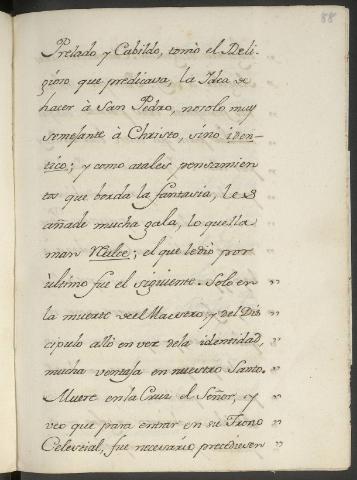 88
Prelado y Cabildo, tomò el Reli-
gioso que predicava, la Idea de
hacer à San Pedro, no solo muy
semejante à Christo, sino iden-
tico; y como atales pensamien
tos que borda la fantasia, les
añade mucha gala, lo que lla
man Reulce; el que le diò por
ùltimo fue el siguiente. Solo en
la muerte del Maestro, y del Dis "
cipulo allò en vez dela identidad, "
mucha ventaja en nuestro Santo. "
Muere en la Cruz el Señor, y "
veo que para entrar en su Trono "
Celestial, fue necesario precediesen "